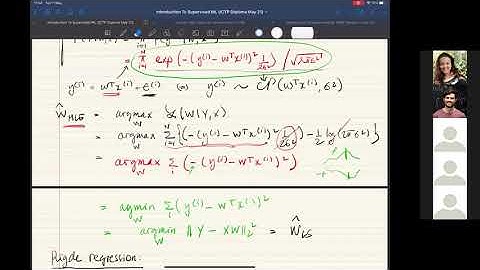 Introduction To Supervised ML UCTF Diploma May 21
= π exp (-(y(i) - wᵀx(i))² 1/2σ²) / √2πσ²
y(i) = wᵀx(i) + ε(i) y(i) ~ (wᵀx(i), σ²)
ŵ MLE = argmax L(w|Y,X)
= argmax Σ {(-(y(i) - wᵀx(i))² 1/2σ²) - 1/2 log(2πσ²)}
= argmax Σ (-(y(i) - wᵀx(i))²)
= argmin Σ (y(i) - wᵀx(i))²
= argmin ‖Y - Xw‖₂² = ŵ LS
Ridge regression: